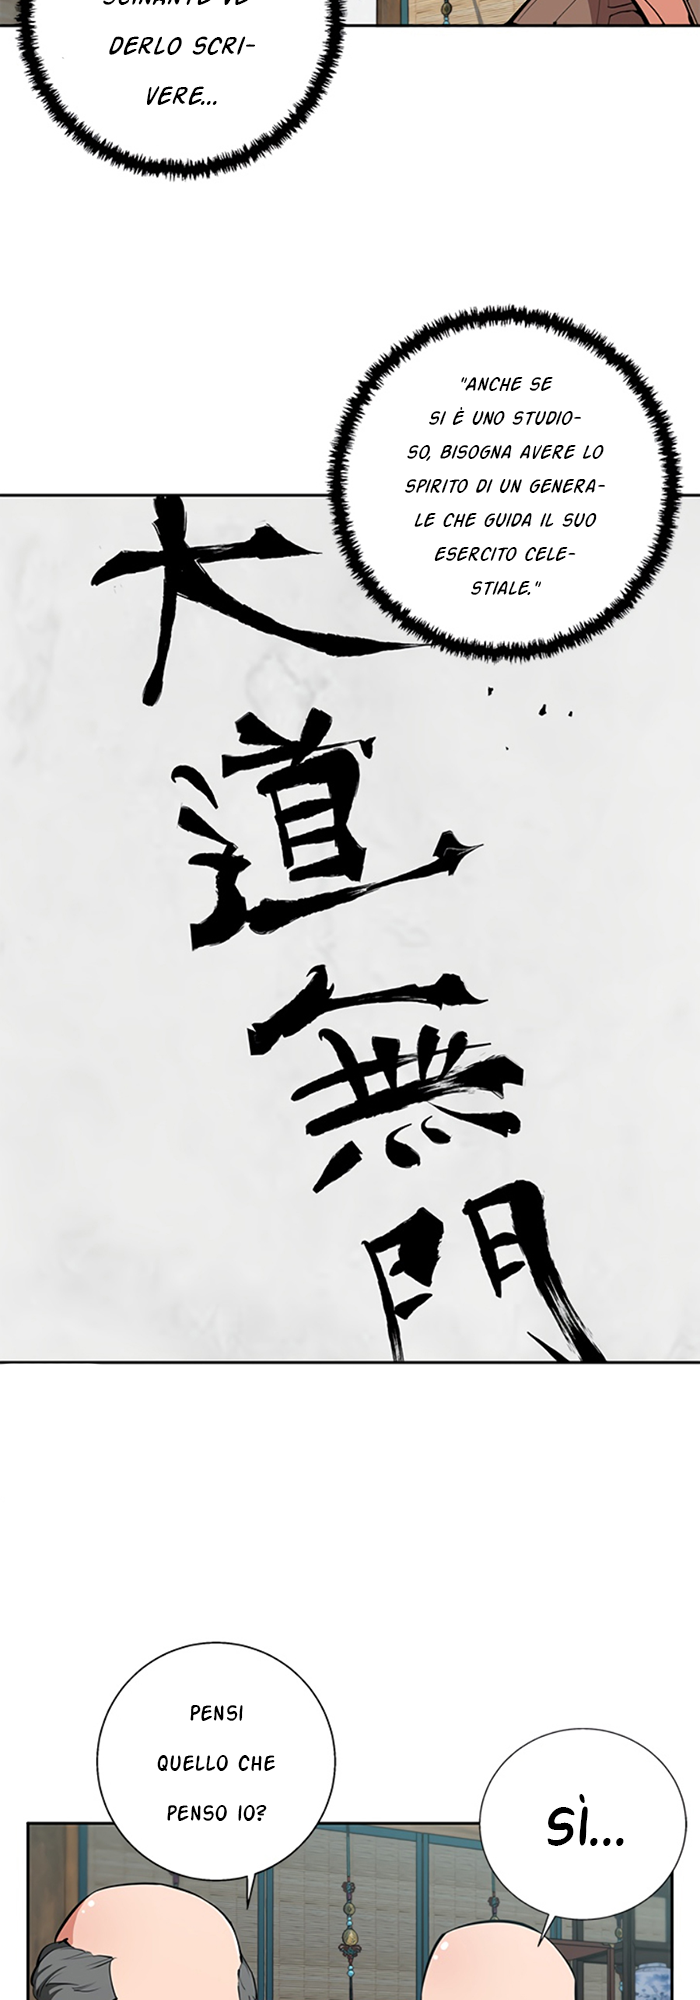 DERLO SCRI-
VERE...
"ANCHE SE
SI È UNO STUDIO-
SO, BISOGNA AVERE LO
SPIRITO DI UN GENERA-
LE CHE GUIDA IL SUO
ESERCITO CELE-
STIALE."
大
道
無
門
PENSI
QUELLO CHE
PENSO IO?
SÌ...